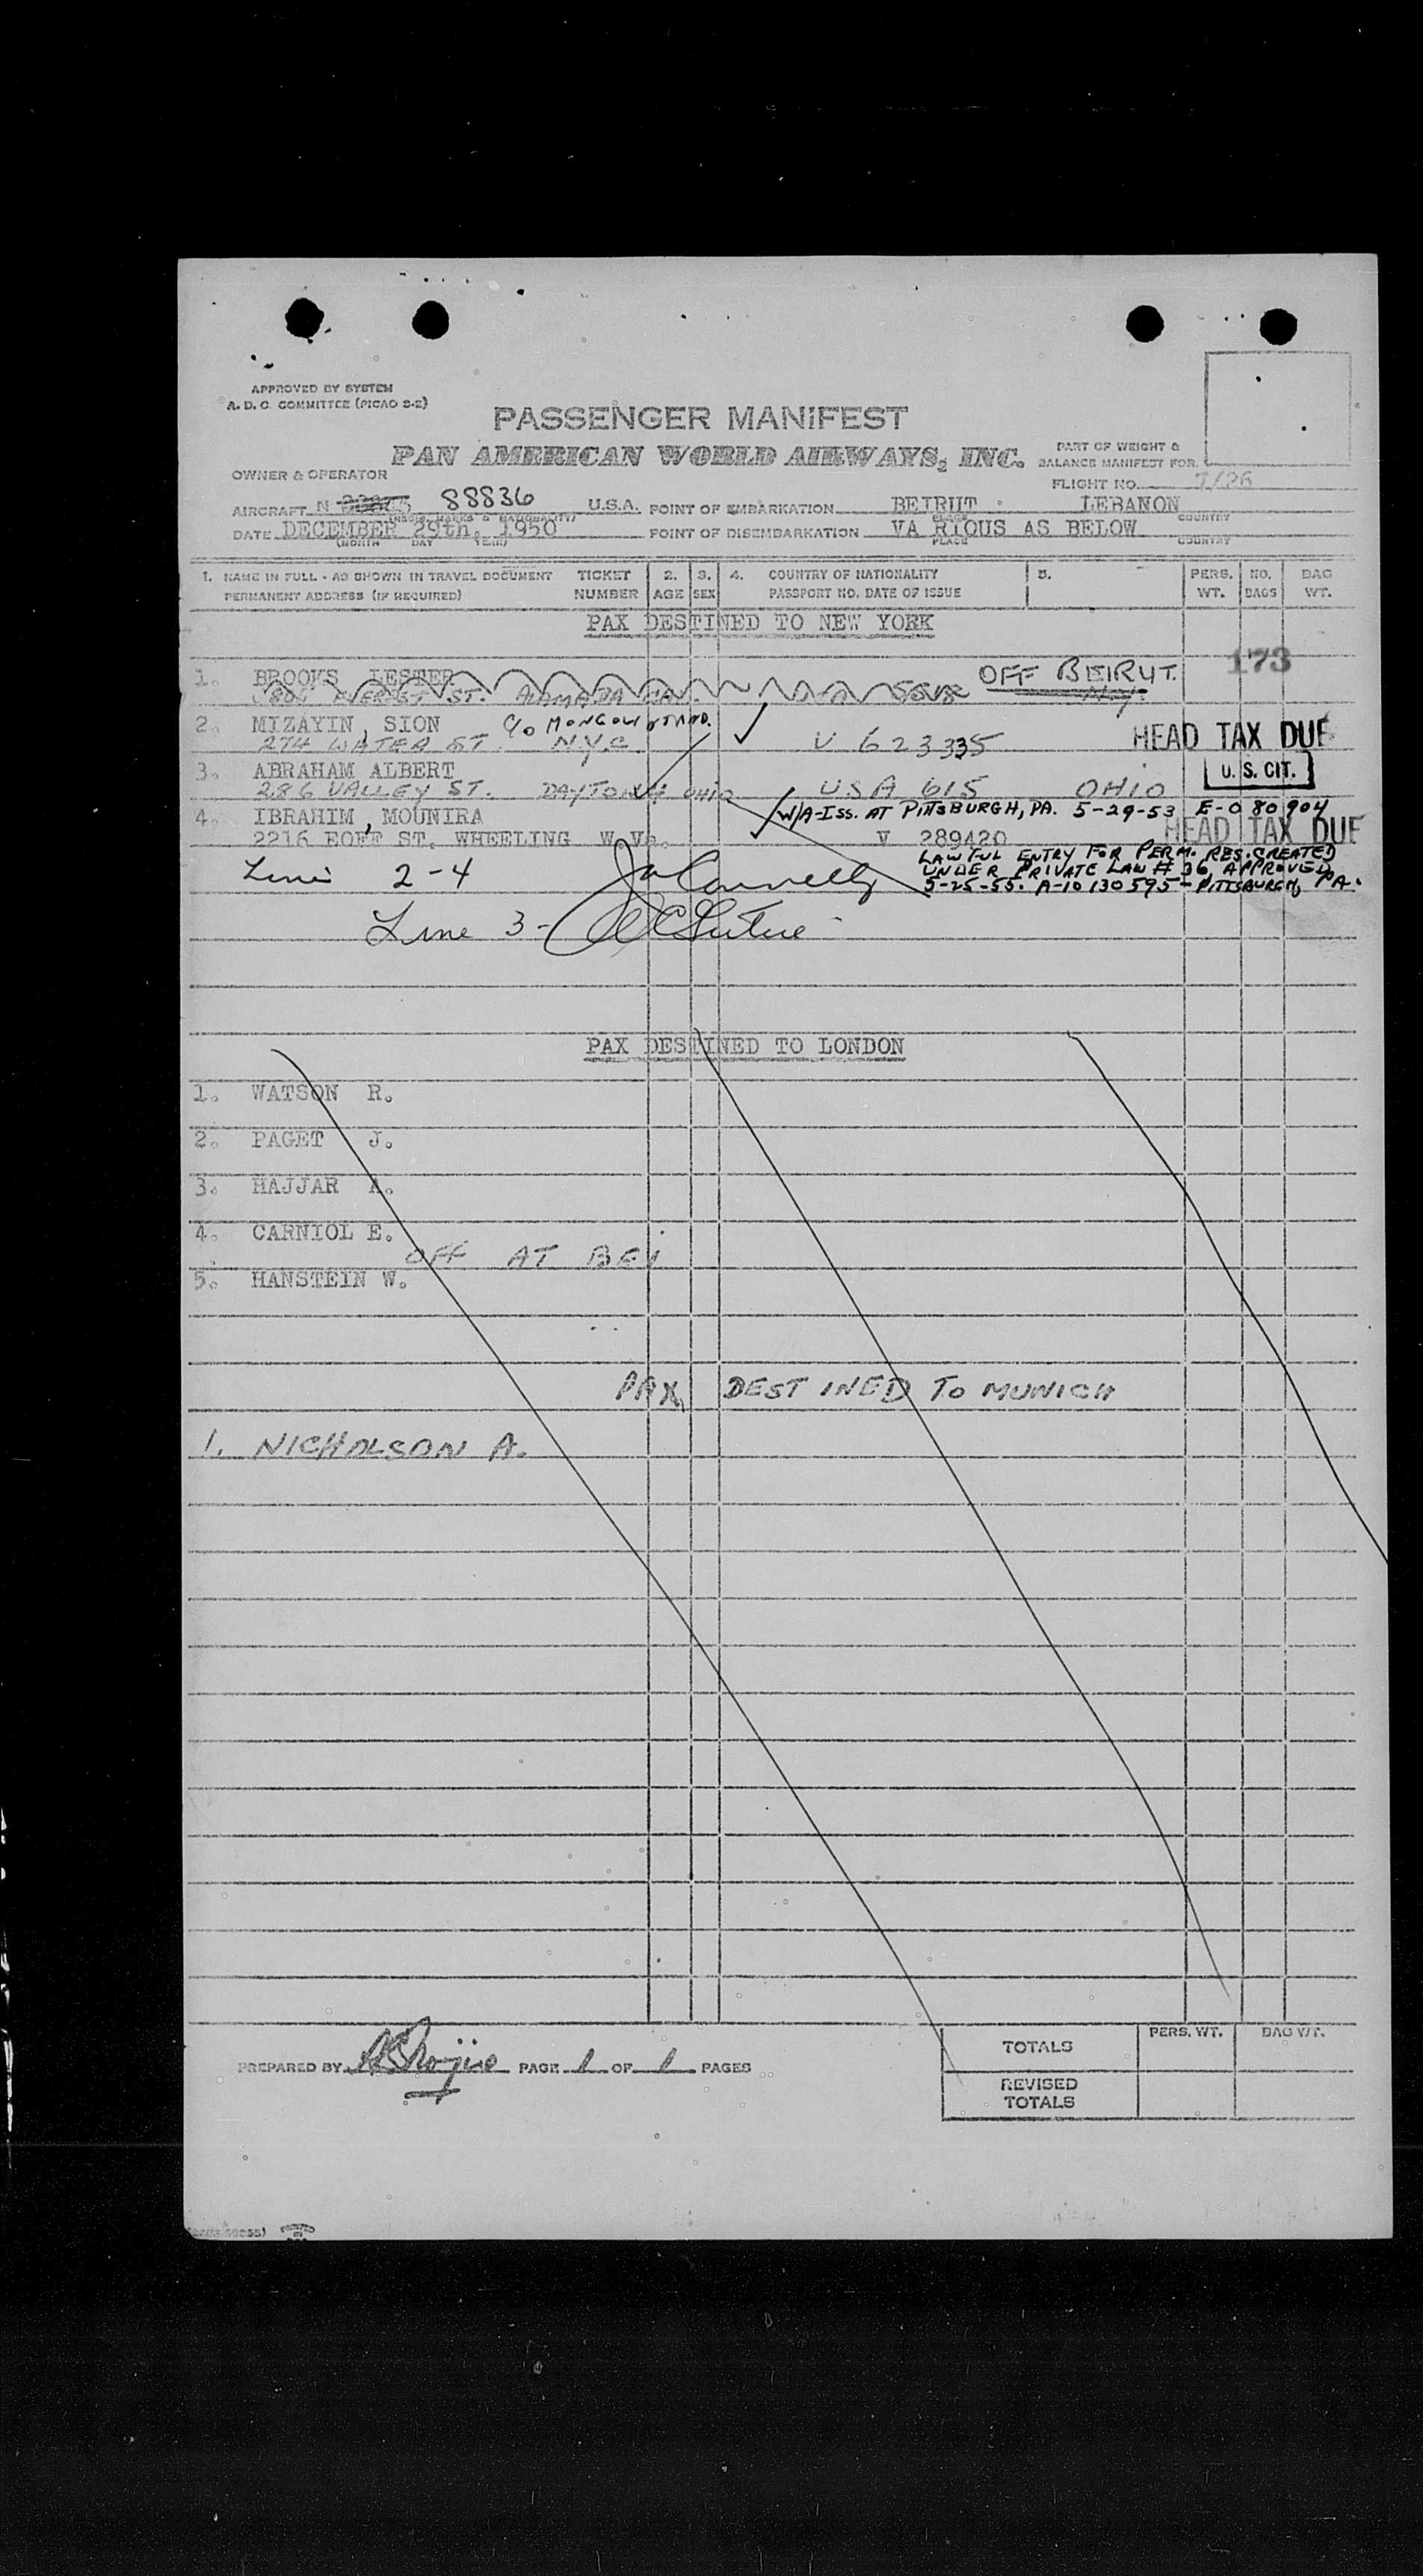 APPROVED BY SYSTEM
A. D. C. COMMITTEE (PICAO 2-2)
PASSENGER MANIFEST
PAN AMERICAN WORLD AIRWAYS, INC.
PART OF WEIGHT &
BALANCE MANIFEST FOR
OWNER & OPERATOR
FLIGHT NO. 1/26
AIRCRAFT N 88836 U.S.A. POINT OF EMBARKATION BEIRUT LEBANON
PLACE COUNTRY
DATE DECEMBER 29th, 1950 POINT OF DISEMBARKATION VA RIOUS AS BELOW
(MONTH DAY YEAR) PLACE COUNTRY
1. NAME IN FULL - AS SHOWN IN TRAVEL DOCUMENT TICKET 2. 3. 4. COUNTRY OF NATIONALITY 5. PERS. NO. BAG
PERMANENT ADDRESS (IF REQUIRED) NUMBER AGE SEX PASSPORT NO. DATE OF ISSUE WT. BAGS WT.
PAX DESTINED TO NEW YORK
1. BROOKS LESTER OFF BEIRUT. 173
ST. N.Y.
2. MIZAYIN, SION C/o HEAD TAX DUE
274 WATER ST. N.Y.C. V 623335
3. ABRAHAM ALBERT U.S. CIT.
286 VALLEY ST. DAYTON OHIO USA 615 OHIO
4. IBRAHIM, MOUNIRA W/A-ISS. AT PITTSBURGH, PA. 5-29-53 E-080904
2216 EOFF ST. WHEELING W.Va. V 289420 HEAD TAX DUE
LAWFUL ENTRY FOR PERM. RES. CREATED
UNDER PRIVATE LAW # 36, APPROVED
5-25-55. A-10 130 595 - PITTSBURGH, PA.
Line 2-4
Line 3-
PAX DESTINED TO LONDON
1. WATSON R.
2. PAGET J.
3. HAJJAR A.
4. CARNIOL E.
OFF AT BEI
5. HANSTEIN W.
PAX DESTINED TO MUNICH
1. NICHOLSON A.
PERS. WT. BAG WT.
TOTALS
PREPARED BY PAGE 1 OF 1 PAGES
REVISED
TOTALS